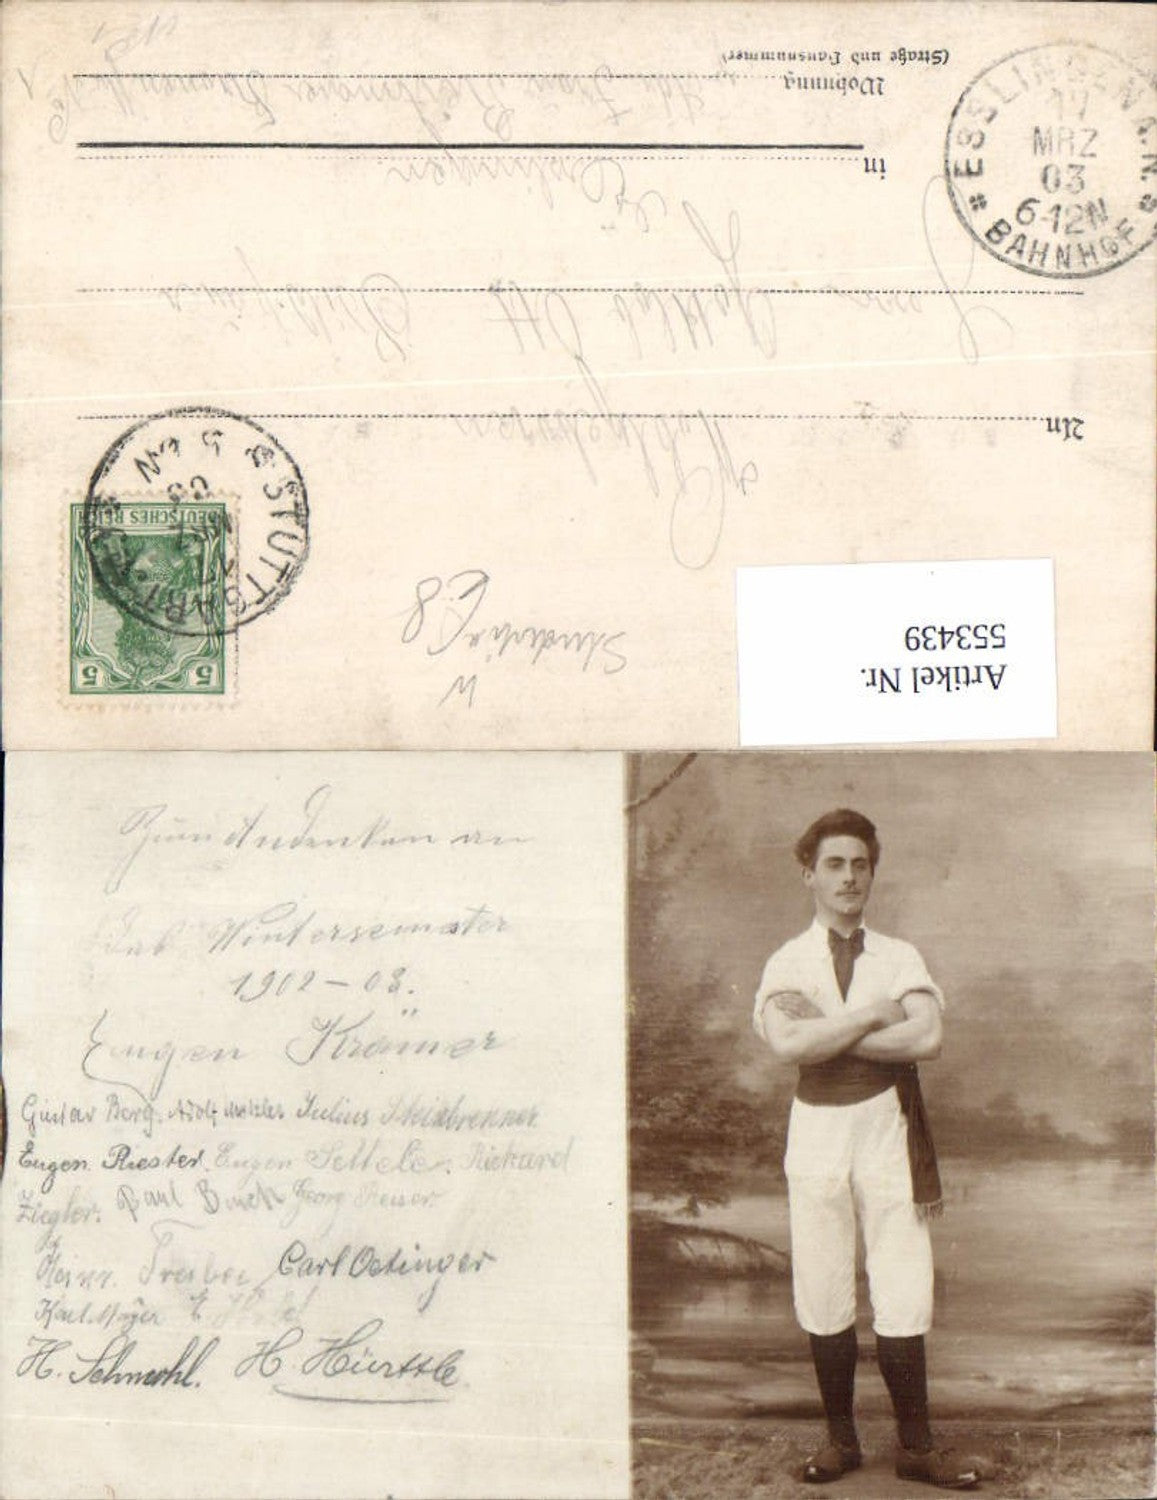 (Straße und Hausnummer)
Wohnung
in
Esslingen
ESSLINGEN A. N.
17
MRZ
03
6-12N
BAHNHOF
Herrn Gottlob Ott
An
Wohlgeboren
STUTTGART
DEUTSCHES REICH
5 5
Artikel Nr.
553439
Zum Andenken an
das Wintersemester
1902-03.
Eugen Krämer
Gustav Berg. Adolf Metzler Julius Steinbrenner
Eugen Riester. Eugen Settele. Rickard
Ziegler. Paul Buck Georg Reiser.
Heinr. Treiber Carl Oetinger
Karl Mayer E.
H. Schmohl. H. Hürttle